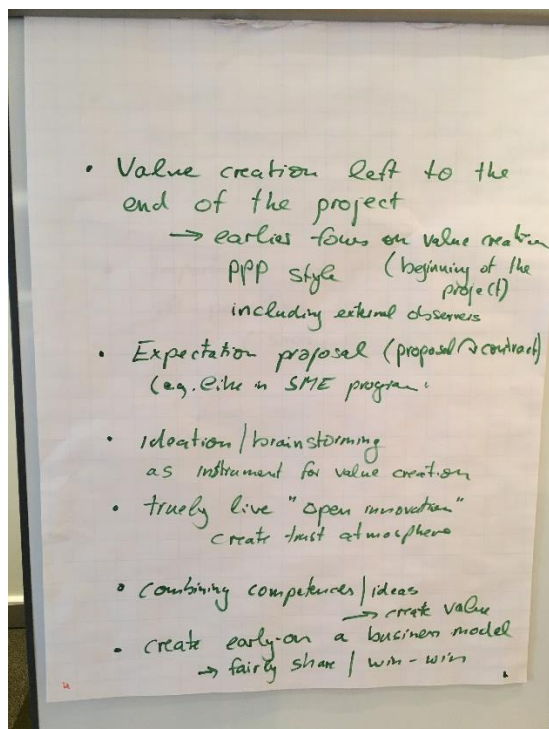 • Value creation left to the
end of the project
→ earlier focus on value creation
PPP style (beginning of the
project)
including external observers
• Expectation proposal (proposal → contract)
(e.g. like in SME program
• ideation/brainstorming
as instrument for value creation
• truely live "open innovation"
create trust atmosphere
• combining competences/ideas
→ create value
• create early-on a business model
→ fairly share / win-win